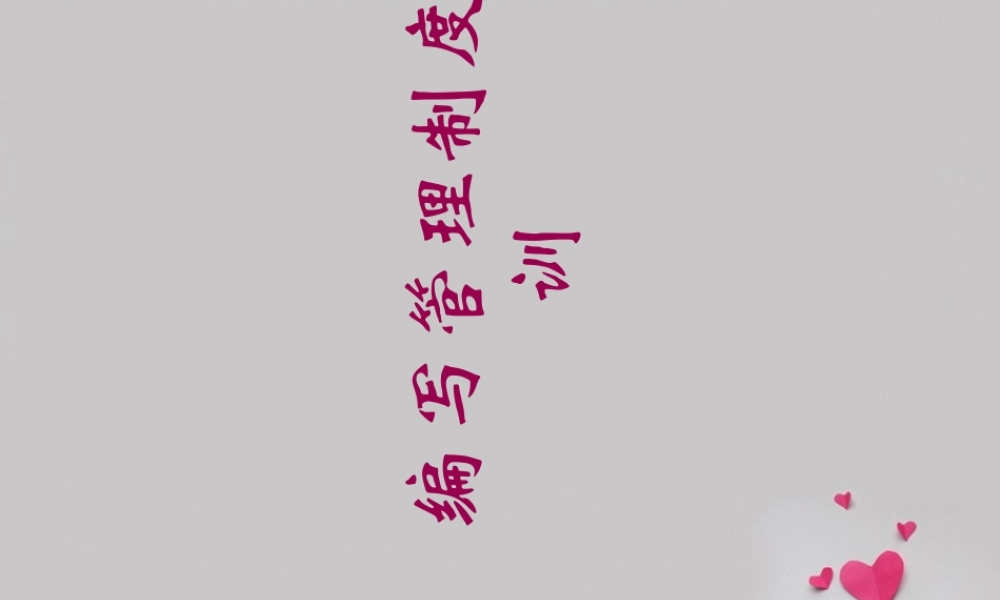 编写管理制度
训